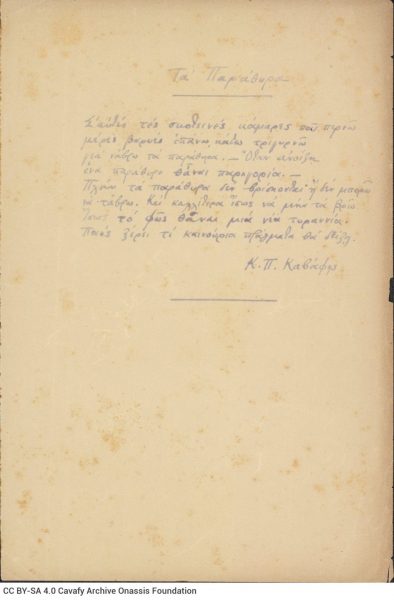 Τα Παράθυρα
Σ' αυτές τες σκοτεινές κάμαρες που περνώ
μέρες βαρυές επάνω κάτω τριγυρνώ
για νάβρω τα παράθυρα. — Όταν ανοίξη
ένα παράθυρο θάναι παρηγορία. —
Πλην τα παράθυρα δεν βρίσκονται ή δεν μπορώ
να τάβρω. Και καλλίτερα ίσως να μην τα βρω
Ίσως το φως θάναι μια νέα τυραννία.
Ποιος ξέρει τι καινούρια πράγματα θα δείξη.
Κ. Π. Καβάφης
CC BY-SA 4.0 Cavafy Archive Onassis Foundation